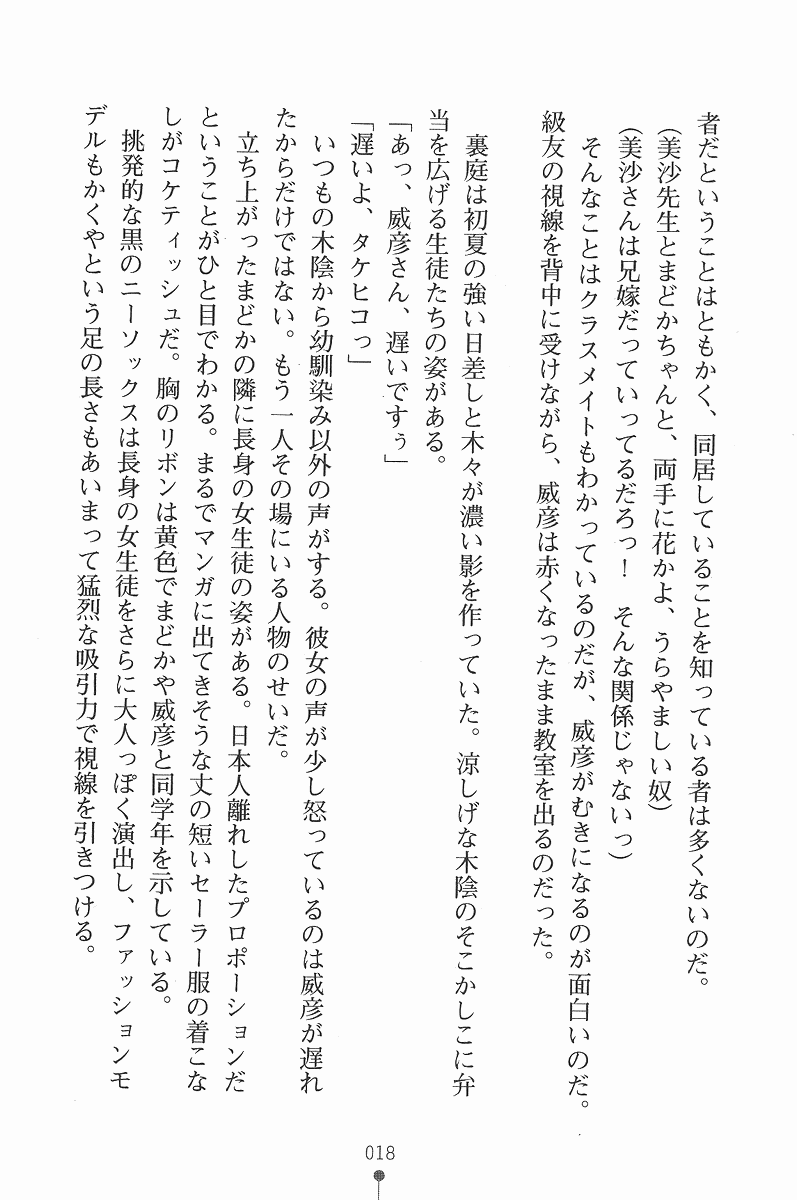 者だということはともかく、同居していることを知っている者は多くないのだ。
(美沙先生とまどかちゃんと、両手に花かよ、うらやましい奴)
(美沙さんは兄嫁だっていってるだろっ！　そんな関係じゃないっ)
そんなことはクラスメイトもわかっているのだが、威彦がむきになるのが面白いのだ。
級友の視線を背中に受けながら、威彦は赤くなったまま教室を出るのだった。
裏庭は初夏の強い日差しと木々が濃い影を作っていた。涼しげな木陰のそこかしこに弁
当を広げる生徒たちの姿がある。
「あっ、威彦さん、遅いですぅ」
「遅いよ、タケヒコっ」
いつもの木陰から幼馴染み以外の声がする。彼女の声が少し怒っているのは威彦が遅れ
たからだけではない。もう一人その場にいる人物のせいだ。
立ち上がったまどかの隣に長身の女生徒の姿がある。日本人離れしたプロポーションだ
ということがひと目でわかる。まるでマンガに出てきそうな丈の短いセーラー服の着こな
しがコケティッシュだ。胸のリボンは黄色でまどかや威彦と同学年を示している。
挑発的な黒のニーソックスは長身の女生徒をさらに大人っぽく演出し、ファッションモ
デルもかくやという足の長さもあいまって猛烈な吸引力で視線を引きつける。
018